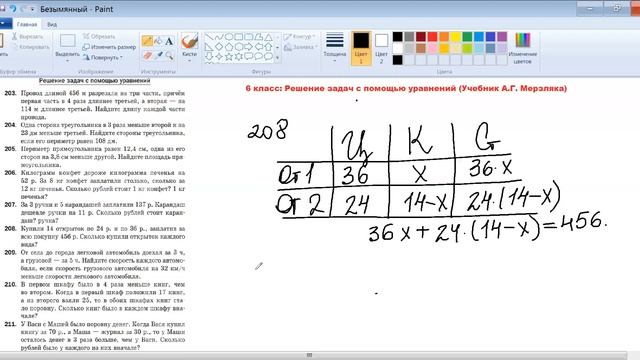 Безымянный - Paint
Главная
Вид
Вырезать
Копировать
Вставить
Обрезать
Изменить размер
Повернуть
Выделить
Контур
Заливка
Толщина
Цвет 1
Цвет 2
Изменение цветов
Буфер обмена
Изображение
Инструменты
Фигуры
Цвета
Решение задач с помощью уравнений
203. Провод длиной 456 м разрезали на три части, причём
первая часть в 4 раза длиннее третьей, а вторая — на
114 м длиннее третьей. Найдите длину каждой части
провода.
204. Одна сторона треугольника в 3 раза меньше второй и на
23 дм меньше третьей. Найдите стороны треугольника,
если его периметр равен 108 дм.
205. Периметр прямоугольника равен 12,4 см, одна из его
сторон на 3,8 см меньше другой. Найдите площадь пря-
моугольника.
206. Килограмм конфет дороже килограмма печенья на
52 р. За 8 кг конфет заплатили столько, сколько за
12 кг печенья. Сколько рублей стоит 1 кг конфет? 1 кг
печенья?
207. За 3 ручки и 5 карандашей заплатили 137 р. Карандаш
дешевле ручки на 11 р. Сколько рублей стоит каран-
даш? ручка?
208. Купили 14 открыток по 24 р. и по 36 р., заплатив за
всю покупку 456 р. Сколько купили открыток каждого
вида?
209. От села до города легковой автомобиль доехал за 3 ч,
а грузовой — за 5 ч. Найдите скорость каждого автомо-
биля, если скорость грузового автомобиля на 32 км/ч
меньше скорости легкового автомобиля.
210. В первом шкафу было в 4 раза меньше книг, чем
во втором. Когда в первый шкаф положили 17 книг,
а из второго взяли 25, то в обоих шкафах книг ста-
ло поровну. Сколько книг было в каждом шкафу вна-
чале?
211. У Васи с Машей было поровну денег. Когда Вася купил
книгу за 70 р., а Маша — журнал за 30 р., то у Маши
осталось денег в 3 раза больше, чем у Васи. Сколько
рублей было у каждого из них вначале?
6 класс: Решение задач с помощью уравнений (Учебник А.Г. Мерзляка)
208
Ц К С
От 1 36 х 36·х
От 2 24 14-х 24·(14-х)
36х+24·(14-х)=456.